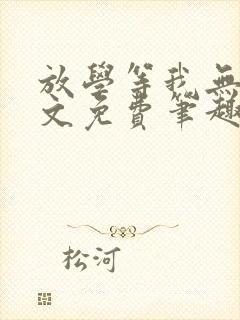 放學等我無
文免費筆趣
松河